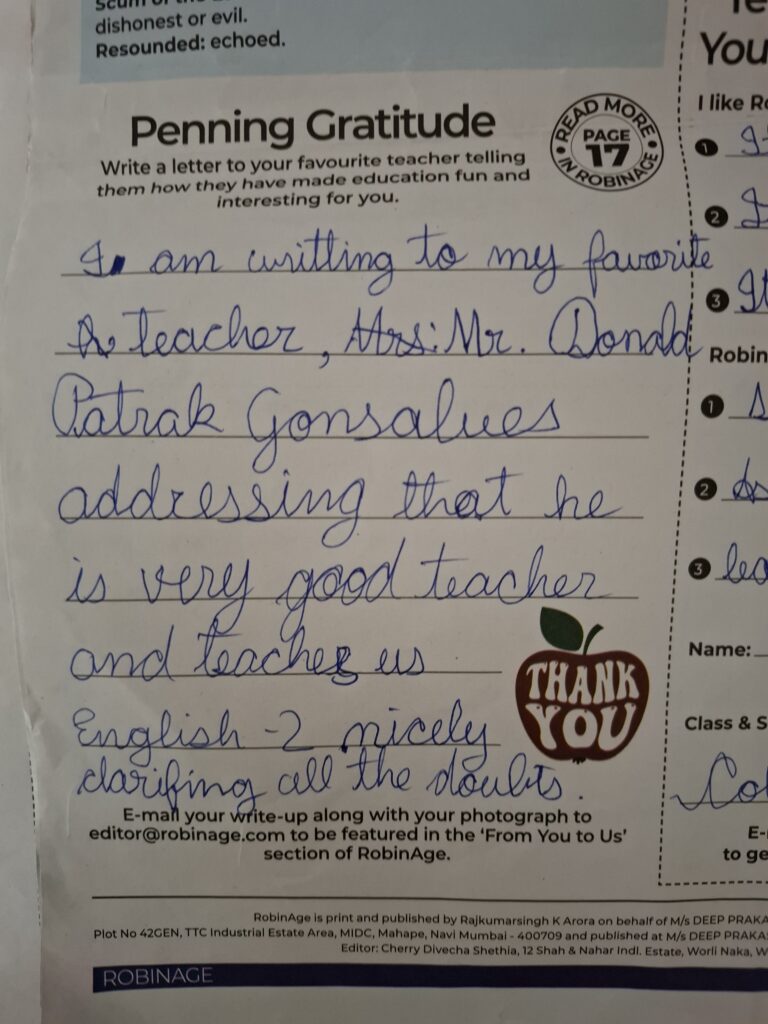 Scum of the
dishonest or evil.
Resounded: echoed.
Penning Gratitude
READ MORE
PAGE
17
IN ROBINAGE
Write a letter to your favourite teacher telling
them how they have made education fun and
interesting for you.
I am writting to my favorite
teacher, Mrs: Mr. Donald
Patrak Gonsalves
addressing that he
is very good teacher
and teaches us
English-2 nicely
clarifing all the doubts.
THANK
YOU
E-mail your write-up along with your photograph to
editor@robinage.com to be featured in the ‘From You to Us’
section of RobinAge.
RobinAge is print and published by Rajkumarsingh K Arora on behalf of M/s DEEP PRAKA
Plot No 42GEN, TTC Industrial Estate Area, MIDC, Mahape, Navi Mumbai - 400709 and published at M/s DEEP PRAKA
Editor: Cherry Divecha Shethia, 12 Shah & Nahar Indl. Estate, Worli Naka, W
ROBINAGE
You
I like Ro
1
2
3
Robin
1
2
3
Name:
Class & S
E-
to ge